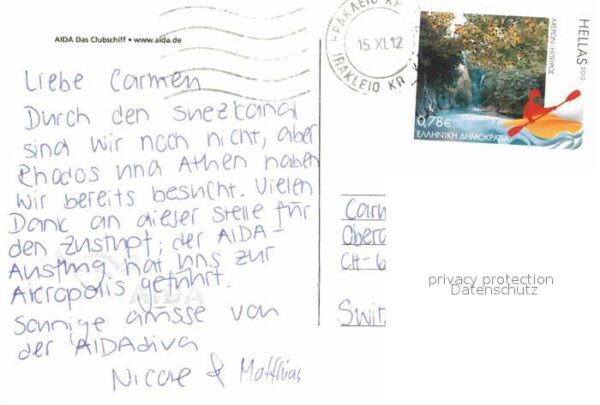 AIDA Das Clubschiff • www.aida.de
Liebe Carmen
Durch den Suezkanal
sind wir noch nicht, aber
Rhodos und Athen haben
wir bereits besucht. Vielen
Dank an dieser Stelle für
den Zustupf; der AIDA-
Ausflug hat uns zur
Akropolis geführt.
Sonnige Grüsse von
der AIDAdiva
Nicole & Matthias
AIDA
ΗΡΑΚΛΕΙΟ ΚΡ
15. XI. 12
IRAKLEIO KR
ΑΧΕΡΩΝ - ΗΠΕΙΡΟΣ
HELLAS 2012
0,78€
ΕΛΛΗΝΙΚΗ ΔΗΜΟΚΡΑΤΙΑ
Carm
Ober
CH-6
Swit
privacy protection
Datenschutz